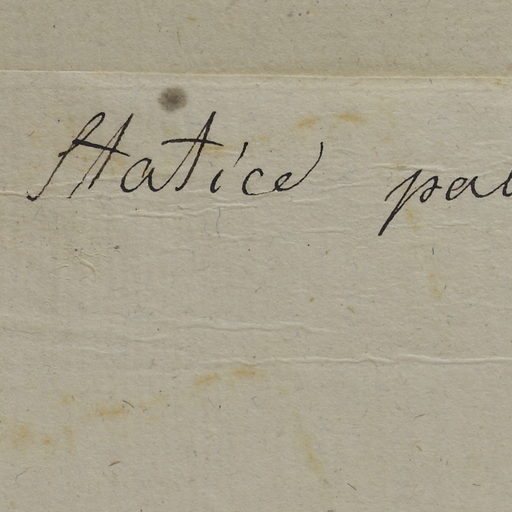 Statice pa